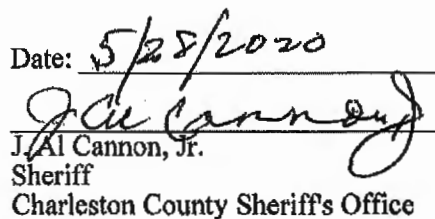 Date: 5/28/2020
J Al Cannon Jr
J. Al Cannon, Jr.
Sheriff
Charleston County Sheriff's Office